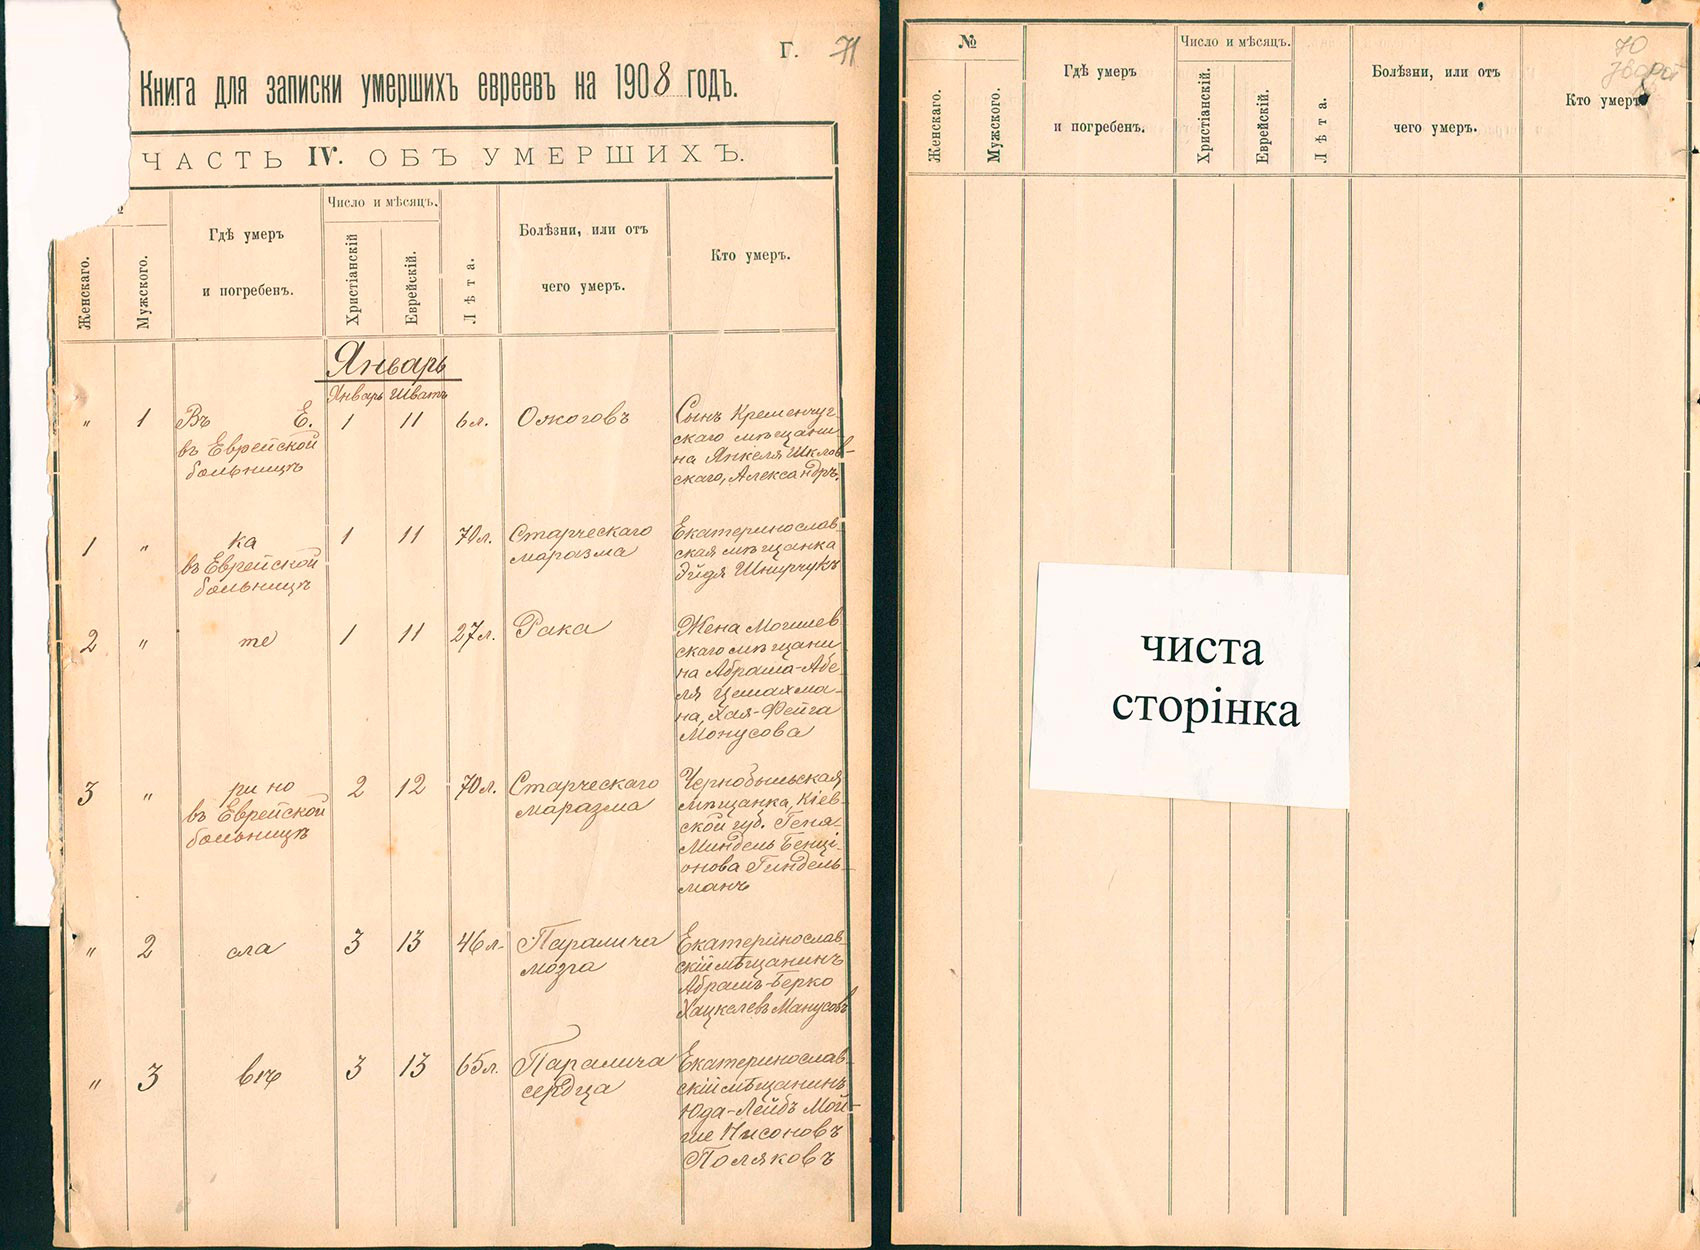 Г. 71
Книга для записки умершихъ евреевъ на 1908 годъ.
ЧАСТЬ IV. ОБЪ УМЕРШИХЪ.
Женскаго.
Мужскаго.
Гдѣ умеръ
и погребенъ.
Число и мѣсяцъ.
Христіанскій
Еврейскій.
Лѣта.
Болѣзни, или отъ
чего умеръ.
Кто умеръ.
Январь
Январь Шватъ
" 1 Въ Е. 1 11 6 л. Ожоговъ
въ Еврейской
больницѣ
Сынъ Кременчуг-
скаго мѣщани-
на Янкеля Шклов-
скаго, Александръ.
1 " ка 1 11 70 л. Старческаго
маразма
въ Еврейской
больницѣ
Екатеринослав-
ская мѣщанка
Эйдя Шнирчукъ
2 " те 1 11 27 л. Рака
Жена Могилев
скаго мѣщани
на Абрама-Абе-
ля Цемахма-
на, Хая-Фейга
Монусова
3 " ри но 2 12 70 л. Старческаго
маразма
въ Еврейской
больницѣ
Чернобыльская
мѣщанка, Кіев-
ской губ. Геня-
Миндель Бенці-
онова Гиндель-
манъ
" 2 сла 3 13 46 л. Паралича
мозга
Екатеринослав-
скій мѣщанинъ
Абрамъ-Берко
Хацкелевъ Манусовъ
" 3 вѣ 3 13 65 л. Паралича
сердца
Екатеринослав-
скій мѣщанинъ
Юда-Лейбъ Мой-
ше Нисоновъ
Поляковъ
70
№
Женскаго.
Мужскаго.
Гдѣ умеръ
и погребенъ.
Число и мѣсяцъ.
Христіанскій.
Еврейскій.
Лѣта.
Болѣзни, или отъ
чего умеръ.
Кто умеръ
чиста
сторінка